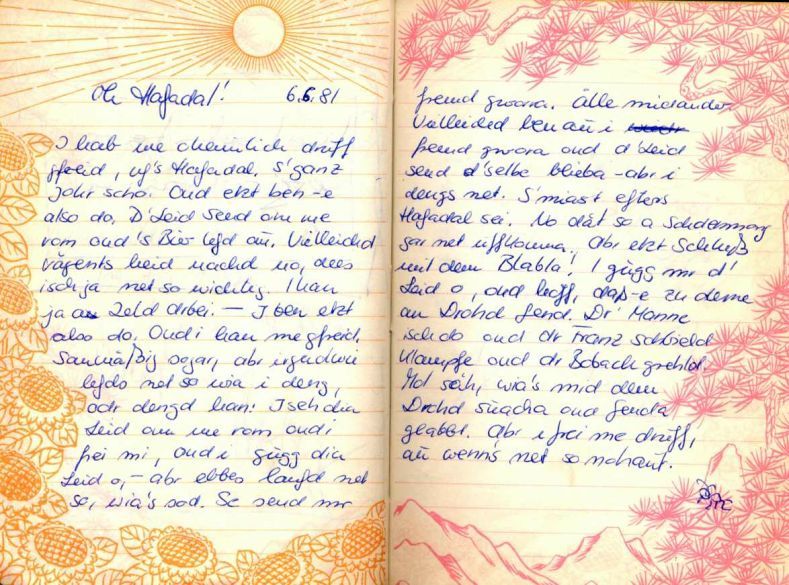 Oh Hafadal! 6.6.81
I hab me cheimlich druff
gfreid, uf's Hafadal. S'ganz
Johr scho. Oud etzt ben-e
also do. D'Leid send om me
rom oud's Bier lefd au. Vielleichd
rägents heid nachd no, dees
isch ja net so wichtig. I han
ja a Zeld drbei. — I ben etzt
also do. Oud i han me gfreid.
Saumäßig sogar, abr irgendwie
lefds net so wia i deng,
odr dengd han: I seh dia
Leid om me rom oud i
frei mi, oud i gugg dia
Leid o, - abr ebbes laufd net
so, wia's sod. Se send mr
fremd gwora. Älle midander.
Vielleichd ben au i
fremd gwora oud d'Leid
send d'selbe blieba - abr i
dengs net. S'miast efters
Hafadal sei. No dät so a
gar net uffkomma, Abr etzt Schluß
mit dem Blabla! I gugg mr d'
Leid o, oud hoff, daß-e zu deme
an Drohd fend. Dr Manne
isch do oud dr Franz schbield
Klampfe oud dr Bobach grehld.
Mol säh, wia's mid dem
Drohd suacha oud fenda
glabbt. Abr i frei me druff,
au wenn's net so nohaut.